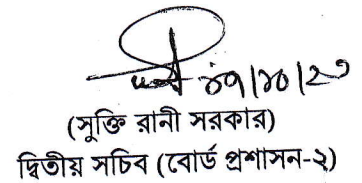 (সুক্তি রানী সরকার)
দ্বিতীয় সচিব (বোর্ড প্রশাসন-২)